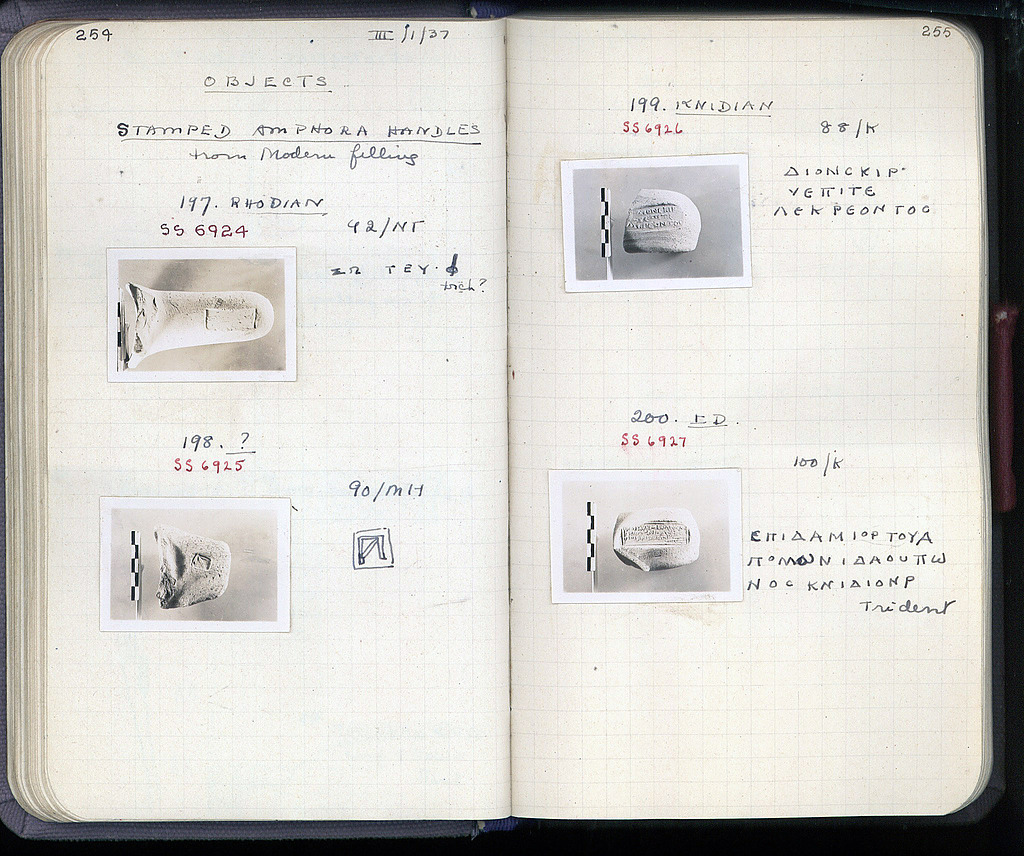 254
III /1/37
OBJECTS
STAMPED AMPHORA HANDLES
from Modern filling
197. RHODIAN
SS 6924
42/NT
ΣΩ ΤΕΥ.
198. ?
SS 6925
90/MH
255
199. KNIDIAN
SS 6926
88/K
ΔΙΟΝCΚΙΡ·
ΥΕΠΙΤΕ
ΛΕΚΡΕΟΝΤΟC
200. ID.
SS 6927
100/K
ΕΠΙΔΑΜΙΟΡΤΟΥΔ
ΠΟΛΛΩΝΙΔΑΟΥΠΩ
ΝΟC ΚΝΙΔΙΟΝΡ
Trident